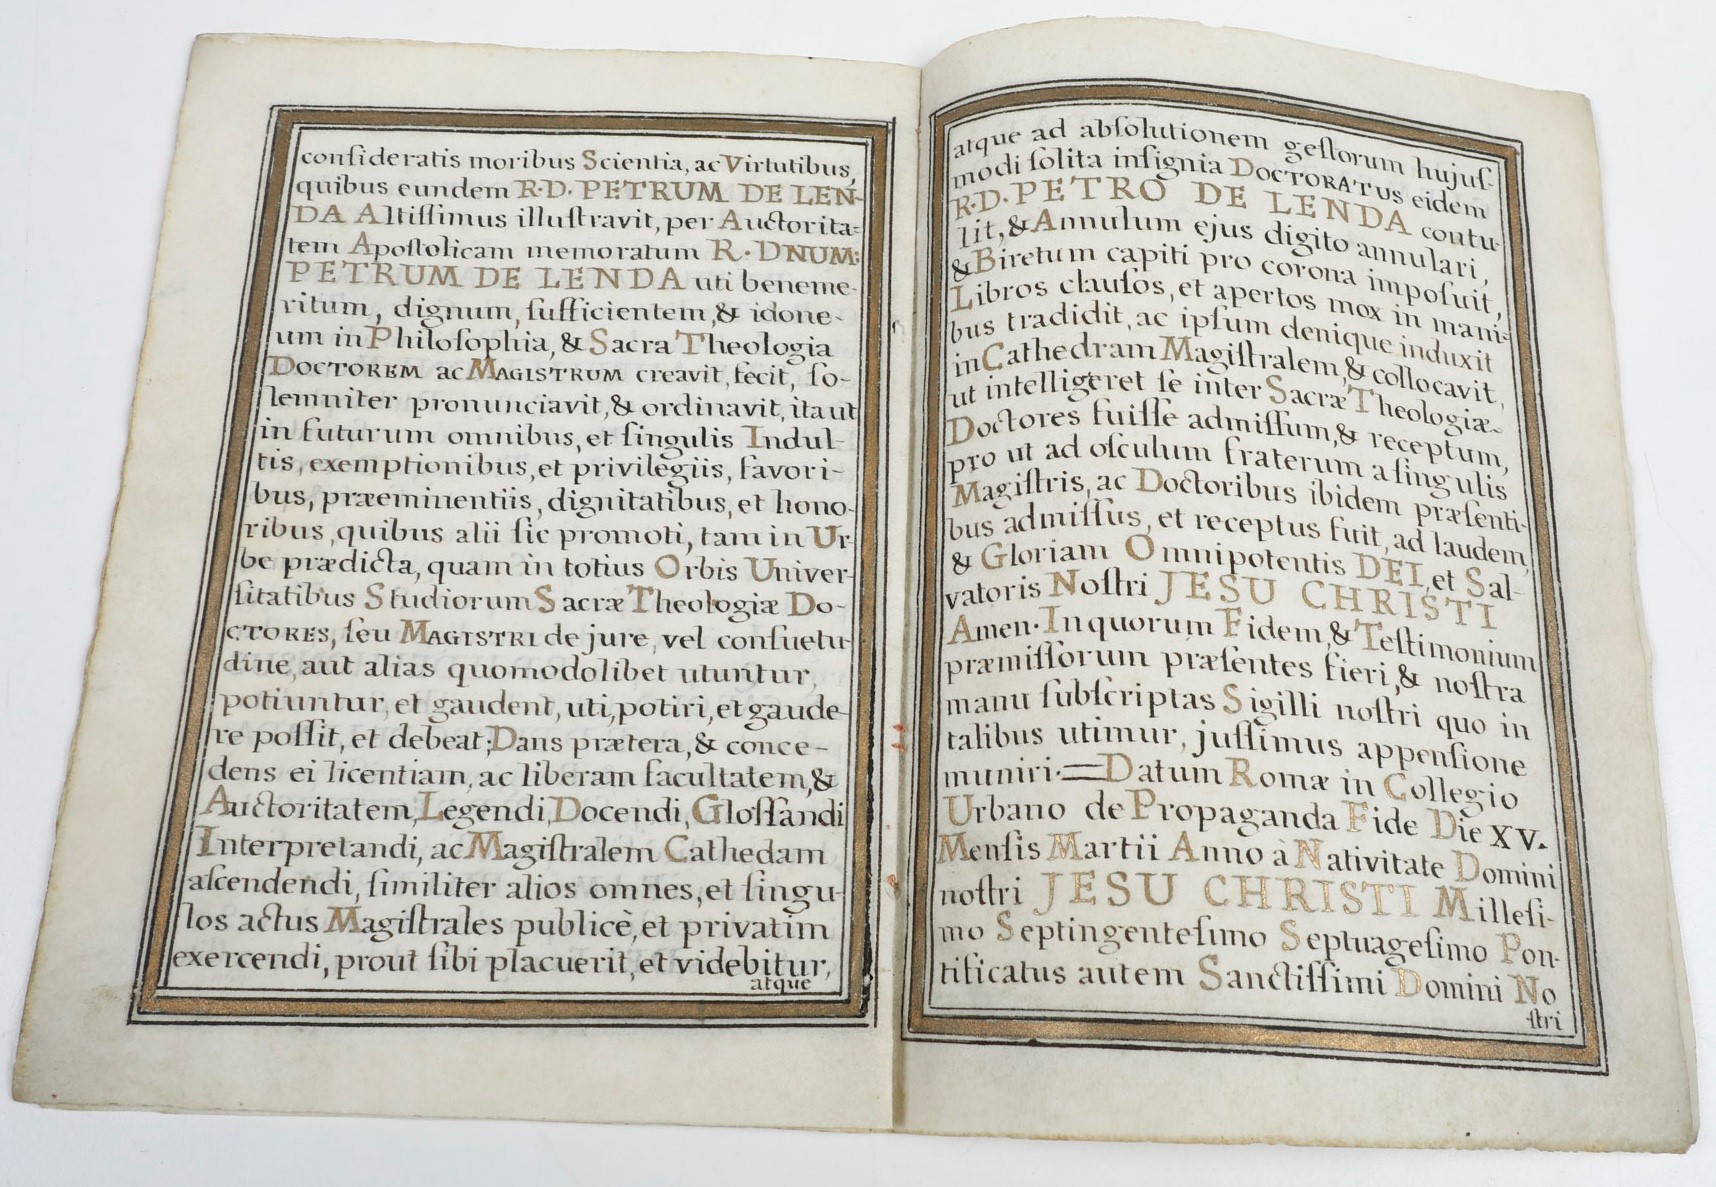 conſideratis moribus Scientia, ac Virtutibus,
quibus eundem R·D· PETRUM DE LEN-
DA Altiſſimus illuſtravit, per Auctorita=
tem Apoſtolicam memoratum R·DNUM:
PETRUM DE LENDA uti beneme-
ritum, dignum, ſufficientem, & idone-
um in Philoſophia, & Sacra Theologia
DOCTOREM ac MAGISTRUM creavit, fecit, ſo-
lemniter pronunciavit, & ordinavit, ita ut
in futurum omnibus, et ſingulis Indul-
tis, exemptionibus, et privilegiis, favori-
bus, præeminentiis, dignitatibus, et hono-
ribus, quibus alii ſic promoti, tam in Ur-
be prædicta, quam in totius Orbis Univer-
ſitatibus Studiorum Sacræ Theologiæ Do-
CTORES, ſeu MAGISTRI de jure, vel conſuetu-
dine, aut alias quomodolibet utuntur,
potiuntur, et gaudent, uti, potiri, et gaude-
re poſſit, et debeat; Dans prætera, & conce-
dens ei licentiam, ac liberam facultatem, &
Auctoritatem, Legendi, Docendi, Gloſſandi
Interpretandi, ac Magiſtralem Cathedam
aſcendendi, ſimiliter alios omnes, et ſingu-
los actus Magiſtrales publicè, et privatim
exercendi, prout ſibi placuerit, et videbitur,
atque
atque ad abſolutionem geſtorum hujuſ-
modi ſolita inſignia DOCTORATUS eidem
R·D· PETRO DE LENDA contu-
lit, & Annulum ejus digito annulari,
& Biretum capiti pro corona impoſuit,
Libros clauſos, et apertos mox in mani-
bus tradidit, ac ipſum denique induxit
in Cathedram Magiſtralem, & collocavit,
ut intelligeret ſe inter Sacræ Theologiæ
Doctores fuiſſe admiſſum, & receptum,
pro ut ad oſculum fraterum a ſingulis
Magiſtris, ac Doctoribus ibidem præſenti-
bus admiſſus, et receptus fuit, ad laudem,
& Gloriam Omnipotentis DEI, et Sal-
vatoris Noſtri JESU CHRISTI
Amen· In quorum Fidem, & Teſtimonium
præmiſſorum præſentes fieri, & noſtra
manu ſubſcriptas Sigilli noſtri quo in
talibus utimur, juſſimus appenſione
muniri·= Datum Romæ in Collegio
Urbano de Propaganda Fide Die XV.
Menſis Martii Anno à Nativitate Domini
noſtri JESU CHRISTI Milleſi-
mo Septingenteſimo Septuageſimo Pon-
tificatus autem Sanctiſſimi Domini No
ſtri